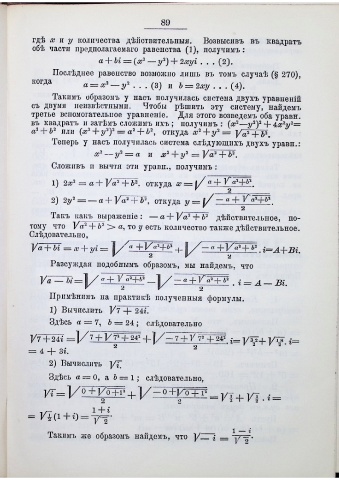 89
гдѣ x и y количества дѣйствительныя. Возвысивъ въ квадратъ
обѣ части предполагаемаго равенства (1), получимъ:
a + bi = (x² — y²) + 2xyi . . . (2).
Послѣднее равенство возможно лишь въ томъ случаѣ (§ 270),
когда
a = x² — y² . . . (3) и b = 2xy . . . (4).
Такимъ образомъ у насъ получилась система двухъ уравненій
съ двумя неизвѣстными. Чтобы рѣшить эту систему, найдемъ
третье вспомогательное уравненіе. Для этого возведемъ оба уравн.
въ квадратъ и затѣмъ сложимъ ихъ; получимъ: (x²—y²)² + 4x²y²=
a² + b² или (x² + y²)² = a² + b², откуда x² + y² = √a² + b².
Теперь у насъ получилась система слѣдующихъ двухъ уравн.:
x² — y² = a и x² + y² = √a² + b².
Сложивъ и вычтя эти уравн., получимъ:
1) 2x² = a + √a² + b², откуда x = √(a + √a² + b²)/2.
2) 2y² = — a + √a² + b², откуда y = √(— a + √a² + b²)/2.
Такъ какъ выраженіе: — a + √a² + b² дѣйствительное, по-
тому что √a² + b² > a, то y есть количество также дѣйствительное.
Слѣдовательно,
√a + bi = x + yi = √(a + √a² + b²)/2 + √(— a + √a² + b²)/2 . i = A + Bi.
Разсуждая подобнымъ образомъ, мы найдемъ, что
√a — bi = √(a + √a² + b²)/2 — √(— a + √a² + b²)/2 . i = A — Bi.
Примѣнимъ на практикѣ полученныя формулы.
1) Вычислить √7 + 24i.
Здѣсь a = 7, b = 24; слѣдовательно
√7 + 24i = √(7 + √7² + 24²)/2 + √(— 7 + √7² + 24²)/2 . i = √32/2 + √18/2 . i =
= 4 + 3i.
2) Вычислить √i.
Здѣсь a = 0, а b = 1; слѣдовательно,
√i = √(0 + √0 + 1²)/2 + √(— 0 + √0 + 1²)/2 = √½ + √½ . i =
= √½ (1 + i) = (1 + i)/√2.
Такимъ же образомъ найдемъ, что √— i = (1 — i)/√2.